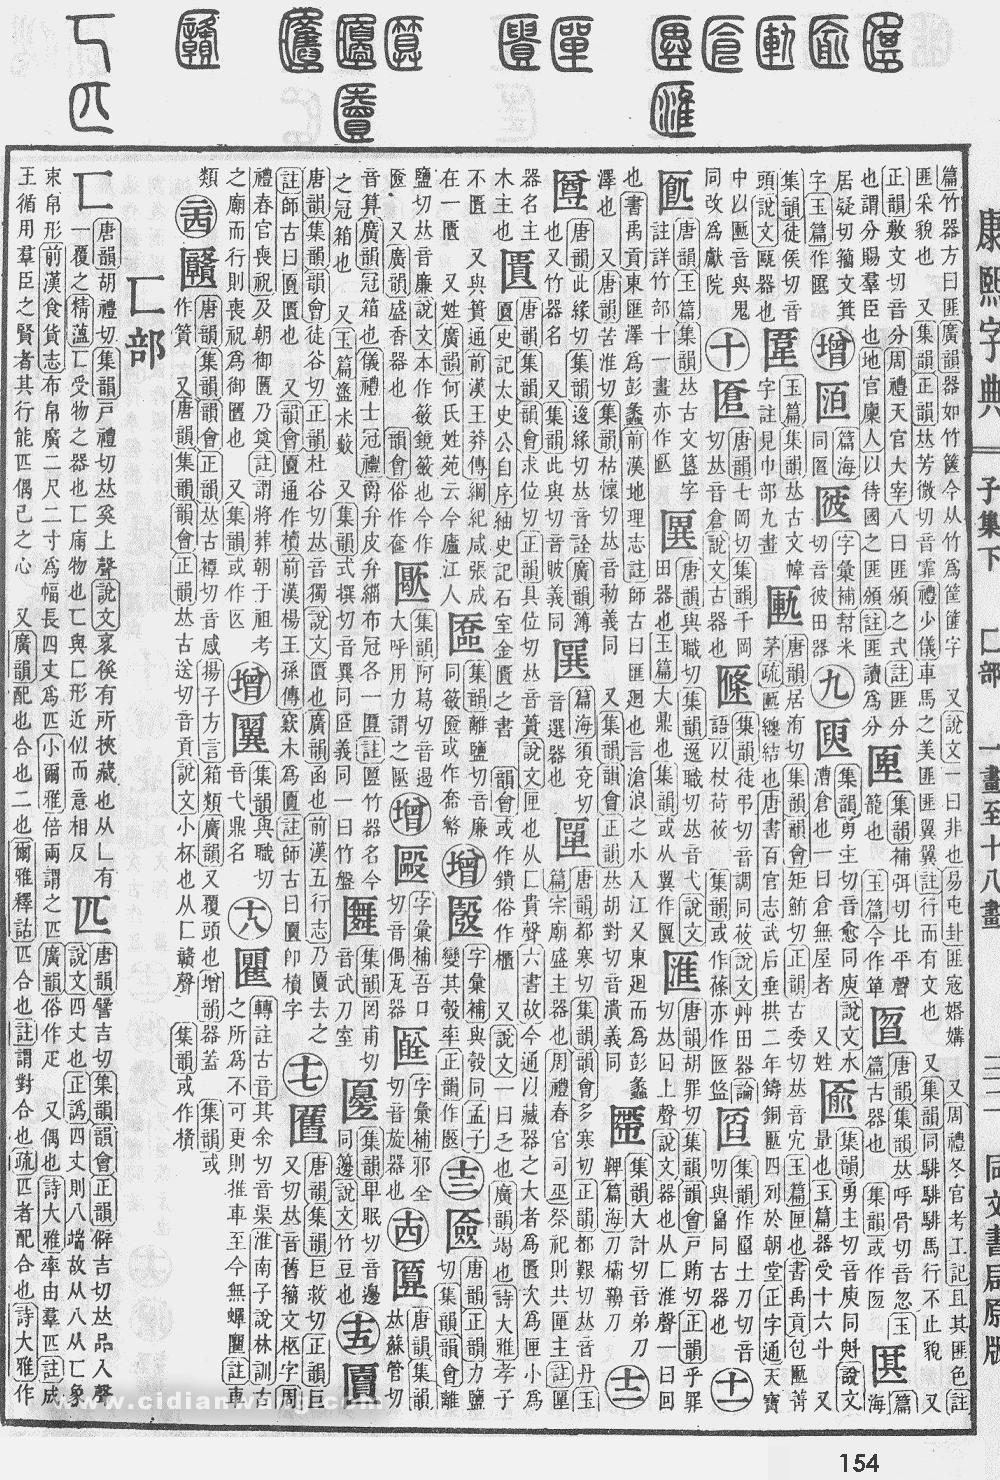 康熙字典 子集下 匚部 一畫至十八畫 三一 同文書局原版
篇竹器方曰匪廣韻器如竹篋今从竹爲筐篚字 又說文一曰非也易屯卦匪寇婚媾 又周禮冬官考工記且其匪色註
匪采貌也 又集韻正韻𠀤芳微切音霏禮少儀車馬之美匪匪翼翼註行而有文也 又集韻同騑騑騑馬行不止貌 又
正韻敷文切音分周禮天官大宰八曰匪頒之式註匪分
也謂分賜羣臣也地官廩人以待國之匪頒註匪讀爲分
集韻補弭切比平聲
籠也 玉篇今作箄
唐韻集韻𠀤呼骨切音忽玉
篇古器也 集韻或作匢
篇海
居疑切籀文箕
字玉篇作匨
增
篇海
同匿
字彙補幇米
切音彼田器
九
匬
集韻勇主切音愈同庾說文水
漕倉也一曰倉無屋者 又姓
集韻勇主切音庾同㪺說文
量也玉篇器受十六斗 又
集韻徒侯切音
頭說文甌器也
玉篇集韻𠀤古文幃
字註見巾部九畫
唐韻居洧切集韻韻會矩鮪切正韻古委切𠀤音宄玉篇匣也書禹貢包匭菁
茅疏匭纏結也唐書百官志武后垂拱二年鑄銅匭四列於朝堂正字通天寶
中以匭音與鬼
同改爲獻院
十
匫
唐韻七岡切集韻千岡
切𠀤音倉說文古器也
匧
集韻徒弔切音調同莜說文艸田器論
語以杖荷莜 集韻或作蓧亦作匧
集韻作匷土刀切音
叨與畐同古器也
十一
唐韻玉篇集韻𠀤古文簋字
註詳竹部十一畫亦作匭
唐韻與職切集韻逸職切𠀤音弋說文
田器也玉篇大鼎也集韻或从翼作
匯
唐韻胡罪切集韻韻會戸賄切正韻乎罪
切𠀤囘上聲說文器也从匚淮聲一曰囘
也書禹貢東匯澤爲彭蠡前漢地理志註師古曰匯迴也言滄浪之水入江又東廻而爲彭蠡
澤也 又唐韻苦淮切集韻枯懷切𠀤音䓙義同 又集韻韻會正韻𠀤胡對切音潰義同
集韻大計切音弟刀
鞞篇海刀欛鞘刀
十二
唐韻此緣切集韻逡緣切𠀤音詮廣韻簿
也 又竹器名 又集韻此與切音跛義同
篇海須兖切
音選器也
匰
唐韻都寒切集韻韻會多寒切正韻都艱切𠀤音丹玉
篇宗廟盛主器也周禮春官司巫祭祀則共匰主註匰
器名主
木主也
匱
唐韻集韻韻會求位切正韻具位切𠀤音蕢說文匣也从匚貴聲六書故今通以藏器之大者爲匱次爲匣小爲
匵史記太史公自序紬史記石室金匱之書 韻會或作鐀俗作櫃 又說文一曰乏也廣韻竭也詩大雅孝子
不匱 又與簣通前漢王莽傳綱紀咸張成
在一匱 又姓廣韻何氏姓苑云今廬江人
集韻離鹽切音廉
同籢匳或作奩𢅏
增
字彙補與𣪊同孟子
變其𣪊率正韻作
十三
匳
唐韻正韻力鹽
切集韻韻會離
鹽切𠀤音廉說文本作籢鏡籢也今作
匳 又廣韻盛香器也 韻會俗作奩
集韻阿葛切音遏
大呼用力謂之
增
字彙補吾口
切音偶瓦器
字彙補邪全
切音旋器也
十四
匴
唐韻集韻
𠀤蘇管切
音算廣韻冠箱也儀禮士冠禮爵弁皮弁緇布冠各一匴註匴竹器名今
之冠箱也 又玉篇盪米䉤 又集韻式撰切音饌同匠義同一曰竹盤
集韻罔甫切
音武刀室
集韻𤰞眠切音邊
同籩說文竹豆也
十五
匵
唐韻集韻韻會徒谷切正韻杜谷切𠀤音獨說文匱也廣韻函也前漢五行志乃匵去之
註師古曰匵匱也 又韻會匵通作櫝前漢楊王孫傳窾木爲匵註師古曰匵卽櫝字
十七
匶
唐韻集韻巨救切正韻巨
又切𠀤音舊籀文柩字周
禮春官喪祝及朝御匶乃奠註謂將葬朝于祖考
之廟而行則喪祝爲御匶也 又集韻或作匛
增
集韻與職切
音弋鼎名
十八
轉註古音其余切音渠淮南子說林訓古
之所爲不可更則推車至今無蟬匷註車
類
二十四
唐韻集韻韻會正韻𠀤古禫切音感揚子方言箱類廣韻又覆頭也增韻器蓋 集韻或
作簧 又唐韻集韻韻會正韻𠀤古送切音貢說文小杯也从匚贛聲 集韻或作㯯
匸部
匸
唐韻胡禮切集韻戸禮切𠀤奚上聲說文衺徯有所挾藏也从乚有
一覆之精薀匚受物之器也匸廂物也匸與匚形近似而意相反
匹
唐韻譬吉切集韻韻會正韻僻吉切𠀤品入聲
說文四丈也正譌四丈則八端故从八从匸象
束帛形前漢食貨志布帛廣二尺二寸爲幅長四丈爲匹小爾雅倍兩謂之匹廣韻俗作疋 又偶也詩大雅率由羣匹註成
王循用羣臣之賢者其行能匹偶己之心 又廣韻配也合也二也爾雅釋詁匹合也註謂對合也疏匹者配合也詩大雅作
www.cidianwang.com
154